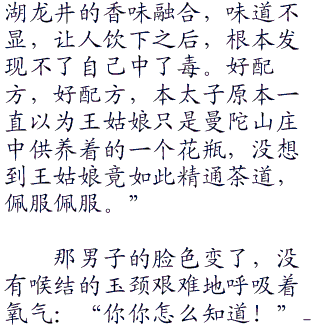 湖龙井的香味融合，味道不
显，让人饮下之后，根本发
现不了自己中了毒。好配
方，好配方，本太子原本一
直以为王姑娘只是曼陀山庄
中供养着的一个花瓶，没想
到王姑娘竟如此精通茶道，
佩服佩服。”
那男子的脸色变了，没
有喉结的玉颈艰难地呼吸着
氧气：“你你怎么知道！”